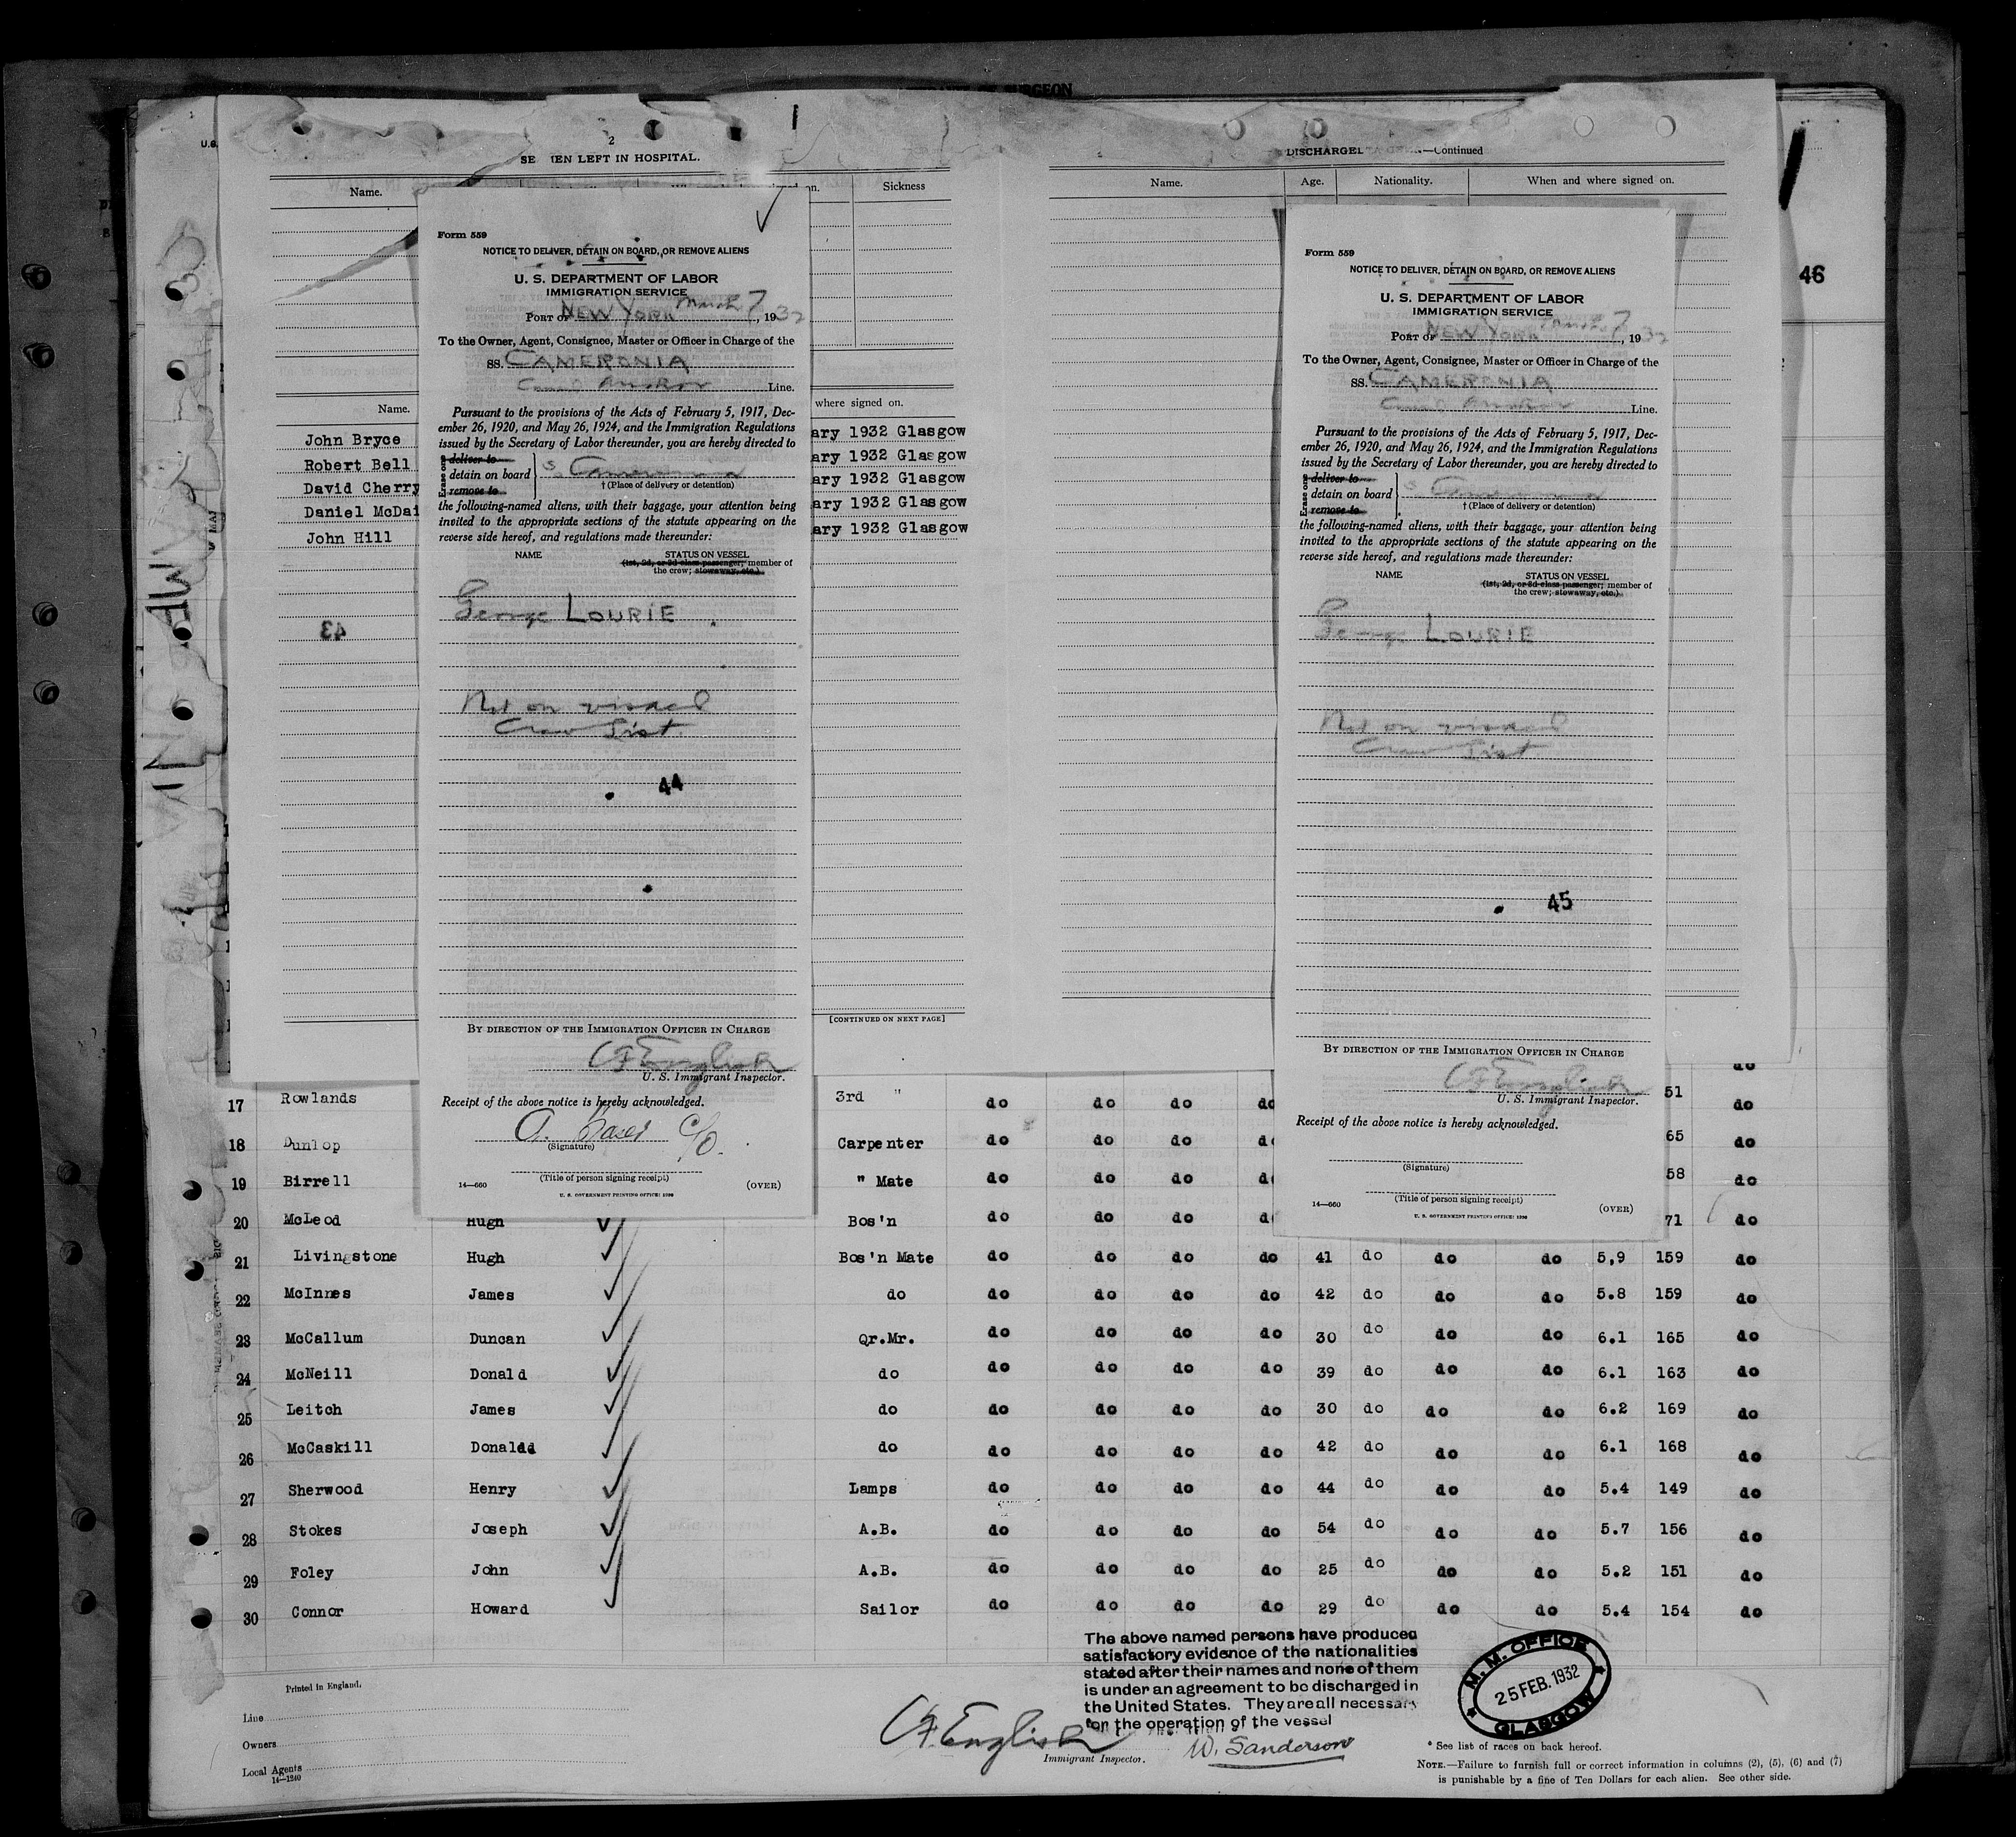 GEON
2
SE  EN LEFT IN HOSPITAL.
Name.
on.
Sickness
DISCHARGE  —Continued
Name. Age. Nationality. When and where signed on.
46
U.S.
Name.
where signed on.
John Bryce ary 1932 Glasgow
Robert Bell ary 1932 Glasgow
David Cherry ary 1932 Glasgow
Daniel McDai ary 1932 Glasgow
John Hill ary 1932 Glasgow
43
[CONTINUED ON NEXT PAGE]
Form 559
NOTICE TO DELIVER, DETAIN ON BOARD, OR REMOVE ALIENS
U. S. DEPARTMENT OF LABOR
IMMIGRATION SERVICE
PORT OF NEW YORK March 7, 1932
To the Owner, Agent, Consignee, Master or Officer in Charge of the
SS. CAMERONIA
Cunard Anchor Line.
Pursuant to the provisions of the Acts of February 5, 1917, Dec-
ember 26, 1920, and May 26, 1924, and the Immigration Regulations
issued by the Secretary of Labor thereunder, you are hereby directed to
Erase one
deliver to
detain on board SS Cameronia
remove to
† (Place of delivery or detention)
the following-named aliens, with their baggage, your attention being
invited to the appropriate sections of the statute appearing on the
reverse side hereof, and regulations made thereunder:
NAME STATUS ON VESSEL
(1st, 2d, or 3d class passenger; member of
the crew; stowaway, etc.)
George LOURIE
Not on visaed
Crew List.
44
BY DIRECTION OF THE IMMIGRATION OFFICER IN CHARGE
CF English
U. S. Immigrant Inspector.
Receipt of the above notice is hereby acknowledged.
C/O.
(Signature)
(Title of person signing receipt)
14—660 (OVER)
U. S. GOVERNMENT PRINTING OFFICE:
Form 559
NOTICE TO DELIVER, DETAIN ON BOARD, OR REMOVE ALIENS
U. S. DEPARTMENT OF LABOR
IMMIGRATION SERVICE
PORT OF NEW YORK March 7, 1932
To the Owner, Agent, Consignee, Master or Officer in Charge of the
SS. CAMERONIA
Cunard Anchor Line.
Pursuant to the provisions of the Acts of February 5, 1917, Dec-
ember 26, 1920, and May 26, 1924, and the Immigration Regulations
issued by the Secretary of Labor thereunder, you are hereby directed to
Erase one
deliver to
detain on board S Cameronia
remove to
† (Place of delivery or detention)
the following-named aliens, with their baggage, your attention being
invited to the appropriate sections of the statute appearing on the
reverse side hereof, and regulations made thereunder:
NAME STATUS ON VESSEL
(1st, 2d, or 3d class passenger; member of
the crew; stowaway, etc.)
George LOURIE
Not on visaed
Crew List
45
BY DIRECTION OF THE IMMIGRATION OFFICER IN CHARGE
CF English
U. S. Immigrant Inspector.
Receipt of the above notice is hereby acknowledged.
(Signature)
(Title of person signing receipt)
14—660 (OVER)
U. S. GOVERNMENT PRINTING OFFICE:
do
17 Rowlands 3rd " do do do do 51 do
18 Dunlop Carpenter do do do d 65 do
19 Birrell " Mate do do do d 58 do
20 McLeod Hugh Bos'n do do do d 71 do
21 Livingstone Hugh Bos'n Mate do do do do 41 do do do 5,9 159 do
22 McInnes James do do do do do 42 do do do 5.8 159 do
23 McCallum Duncan Qr.Mr. do do do do 30 do do do 6.1 165 do
24 McNeill Donald do do do do do 39 do do do 6.1 163 do
25 Leitch James do do do do do 30 do do do 6.2 169 do
26 McCaskill Donaldd do do do do do 42 do do do 6.1 168 do
27 Sherwood Henry Lamps do do do do 44 do do do 5.4 149 do
28 Stokes Joseph A.B. do do do do 54 do do do 5.7 156 do
29 Foley John A.B. do do do do 25 do do do 5.2 151 do
30 Connor Howard Sailor do do do do 29 do do do 5.4 154 do
The above named persons have produced
satisfactory evidence of the nationalities
stated after their names and none of them
is under an agreement to be discharged in
the United States. They are all necessary
for the operation of the vessel
M. M. OFFICE
25 FEB. 1932
GLASGOW
Printed in England.
Line
Owners
Local Agents
14—1240
CF English
Immigrant Inspector.
W. Sanderson
* See list of races on back hereof.
NOTE.—Failure to furnish full or correct information in columns (2), (5), (6) and (7)
is punishable by a fine of Ten Dollars for each alien. See other side.